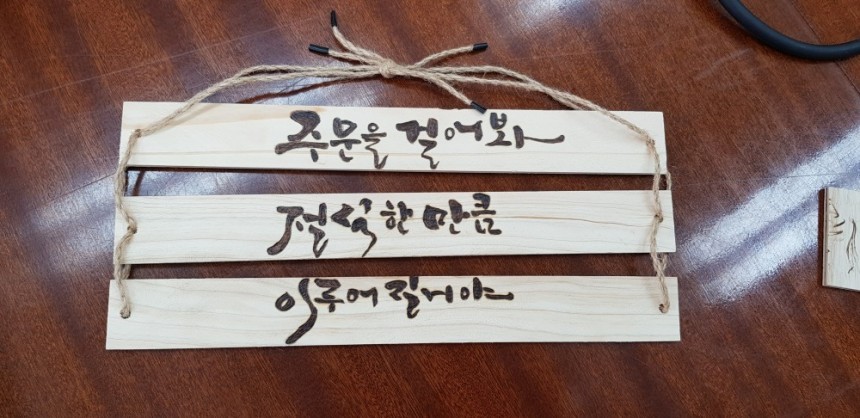 주문을 걸어봐
절실한 만큼
이루어질거야